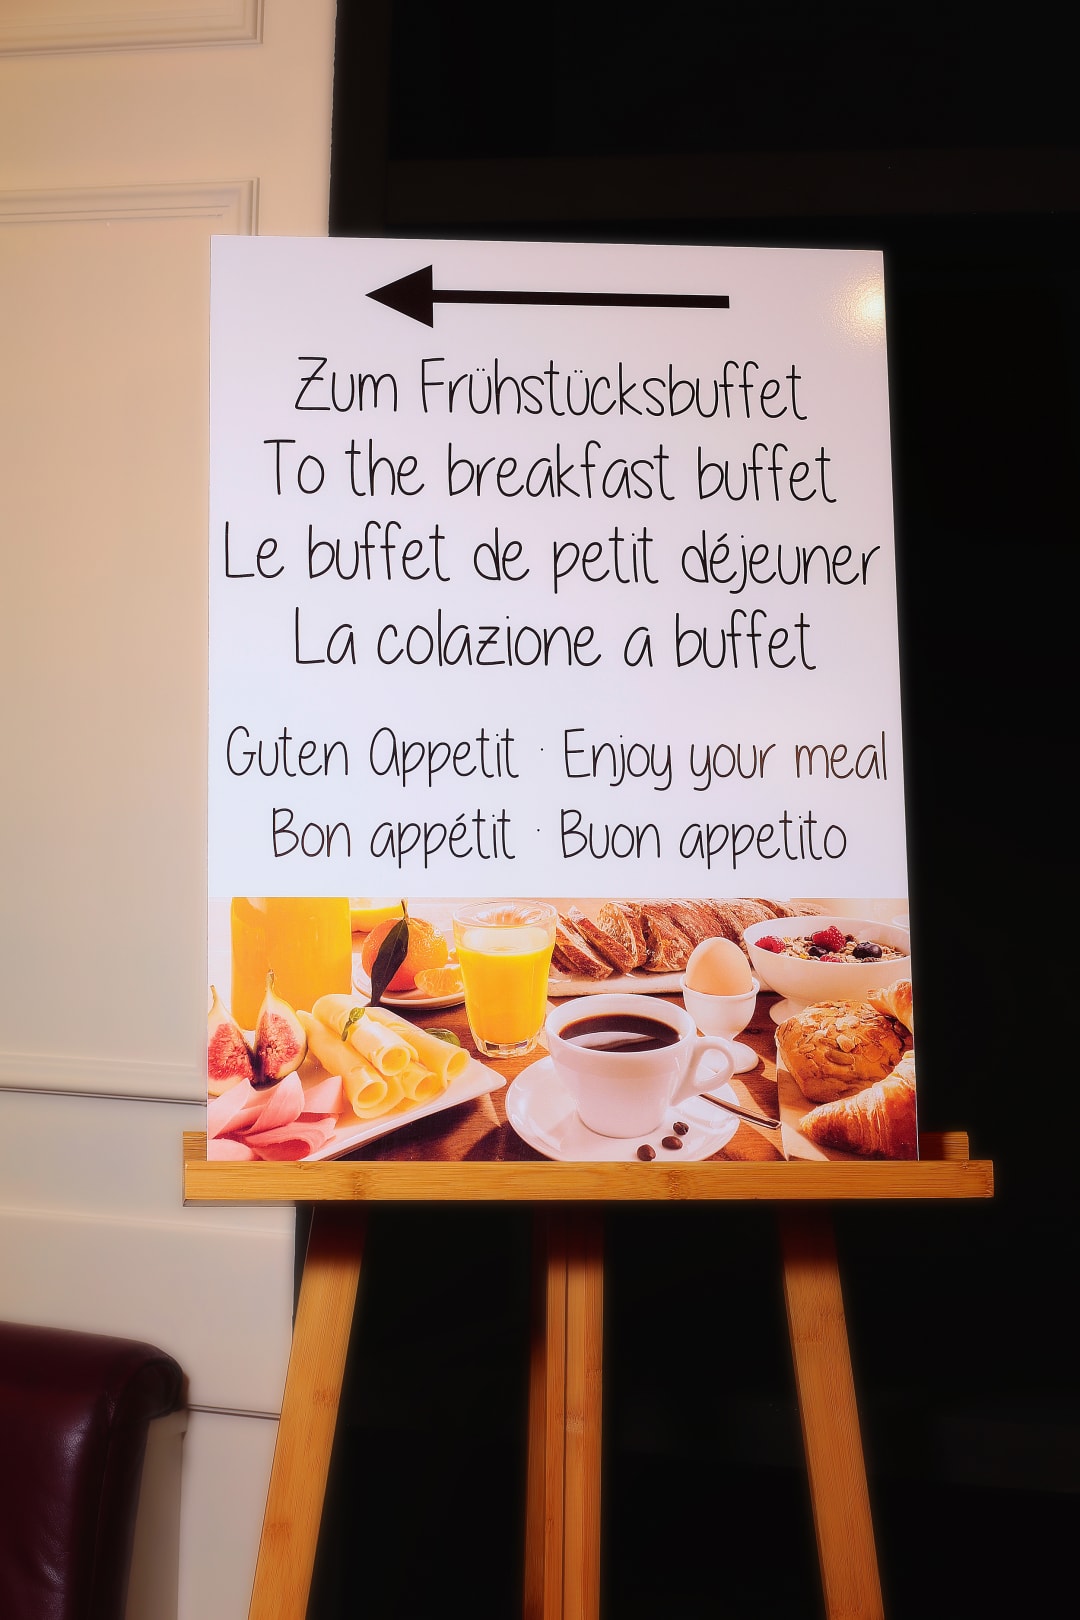 Zum Frühstücksbuffet
To the breakfast buffet
Le buffet de petit déjeuner
La colazione a buffet
Guten Appetit · Enjoy your meal
Bon appétit · Buon appetito